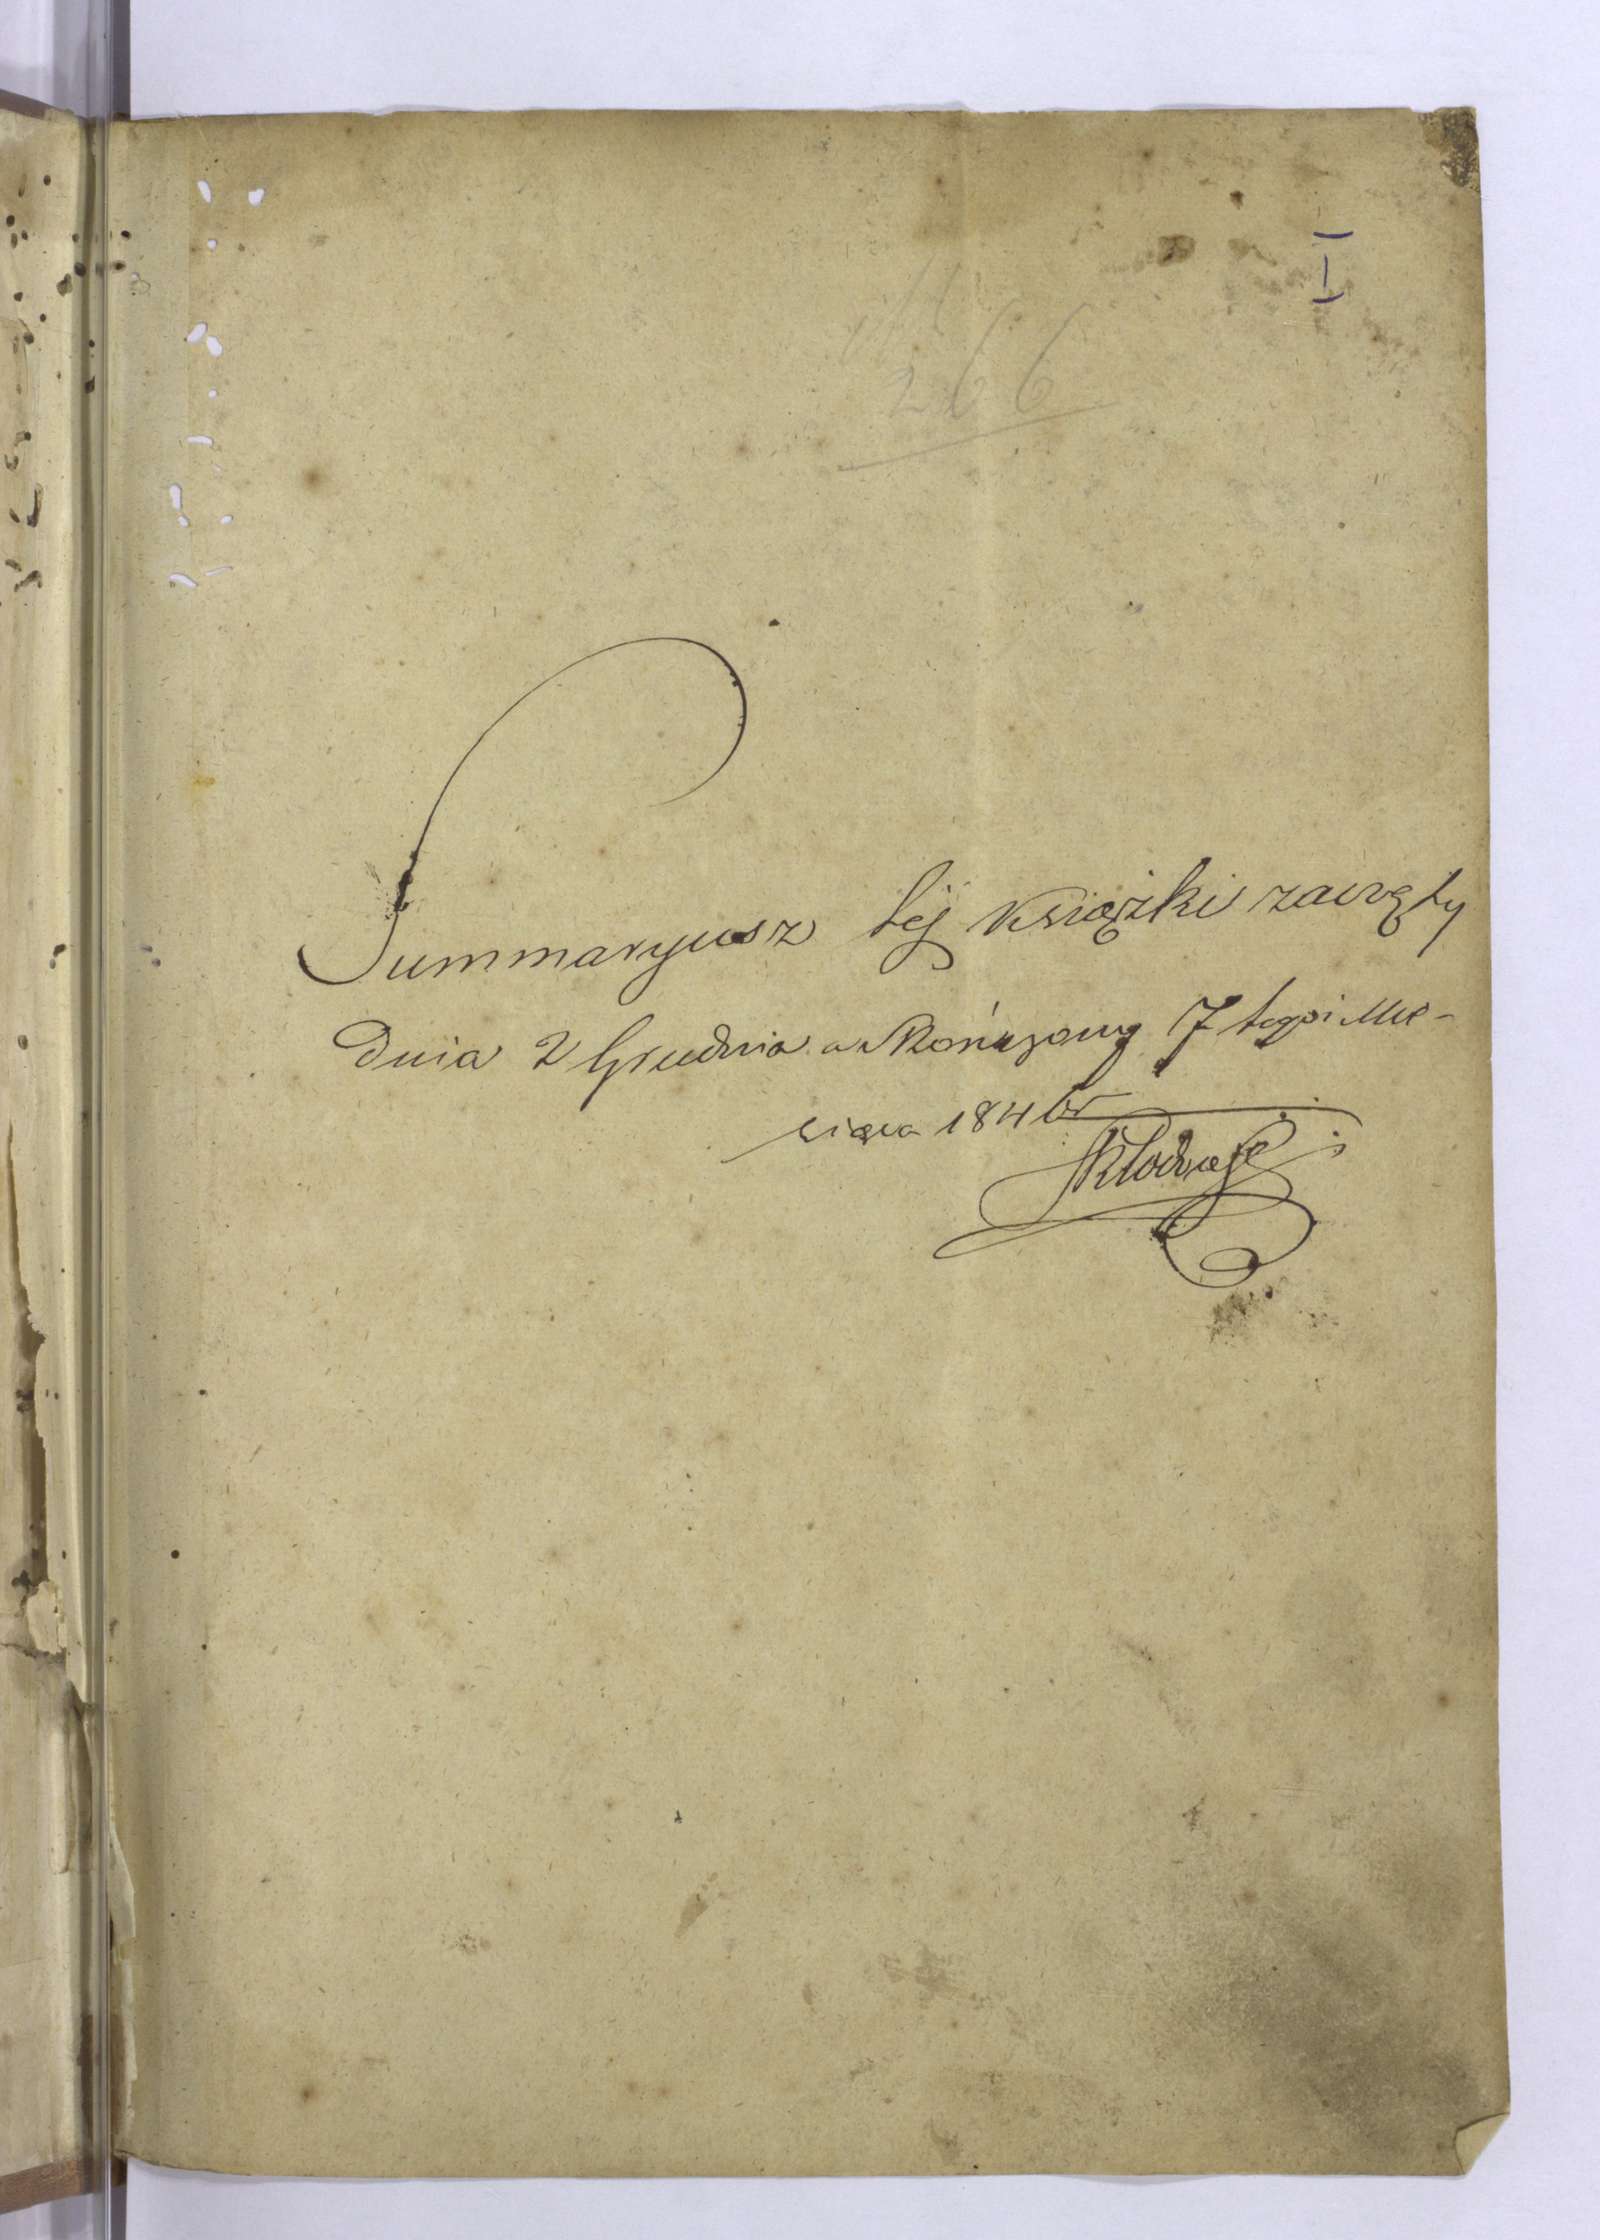 I
266
Summaryusz tej Książki zaczęty
dnia 2 Grudnia a skończony 7 tegoż Mie-
siąca 184